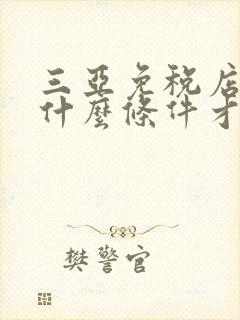 三亞免稅店
什麼條件才
樊警官